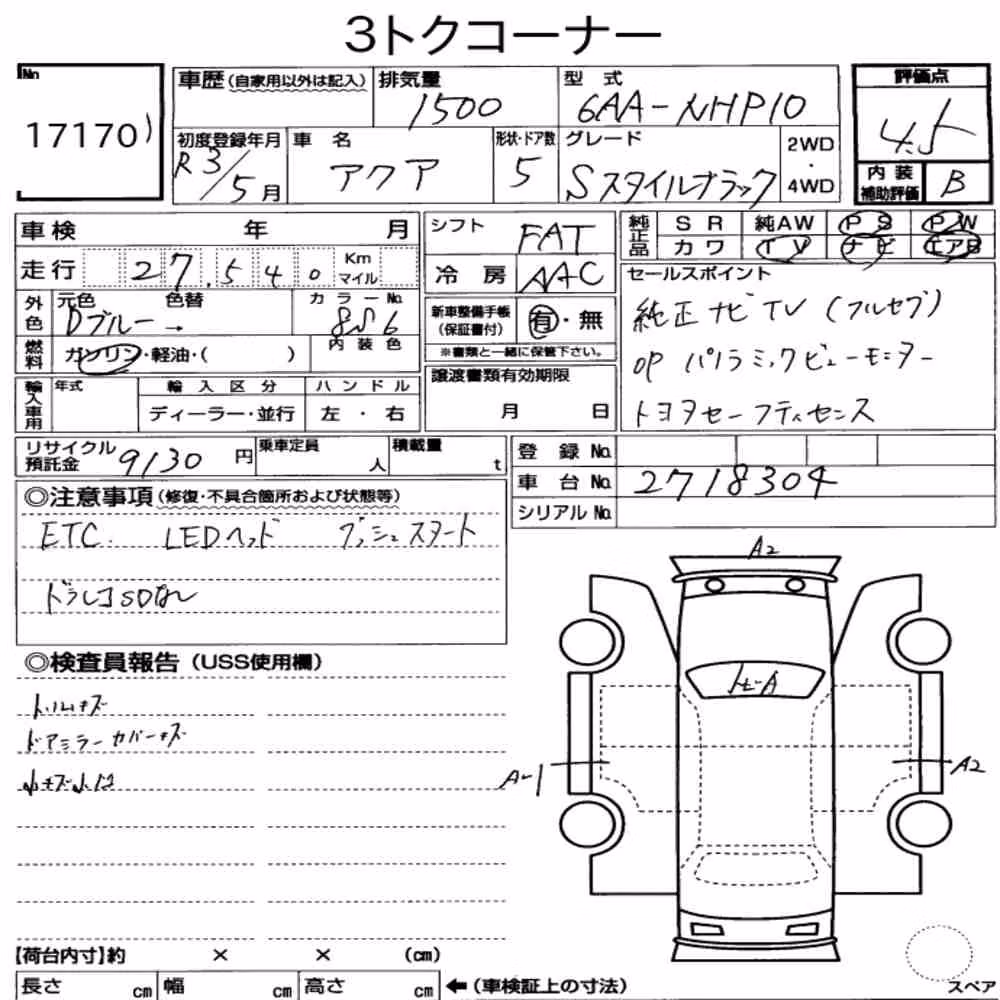 3トクコーナー
No
17170)
車歴(自家用以外は記入) 排気量 1500 型式 6AA-NHP10 評価点 4.5
初度登録年月 R3/5月 車名 アクア 形状・ドア数 5 グレード Sスタイルブラック 2WD・4WD
内装補助評価 B
車検 年 月
走行 27,540 Km マイル
外色 元色 Dブルー→ 色替 カラーNo. 8S6
燃料 ガソリン・軽油・( ) 内装色
輸入車用 年式 輸入区分 ディーラー・並行 ハンドル 左・右
シフト FAT
冷房 AAC
新車整備手帳(保証書付) 有・無
※書類と一緒に保管下さい。
譲渡書類有効期限
月 日
純正品 SR 純AW PS PW
カワ TV ナビ エアB
セールスポイント
純正ナビTV(フルセグ)
OP パノラミックビューモニター
トヨタセーフティセンス
リサイクル預託金 9130円 乗車定員 人 積載量 t
登録No.
車台No. 2718304
シリアルNo.
◎注意事項(修復・不具合箇所および状態等)
ETC. LEDヘッド プッシュスタート
ドラレコSDなし
◎検査員報告(USS使用欄)
ドアミラーカバーキズ
小キズ小凹
A2
トビ-A
A-1
A2
【荷台内寸】約 × × (cm)
長さ cm 幅 cm 高さ cm ←(車検証上の寸法)
スペア